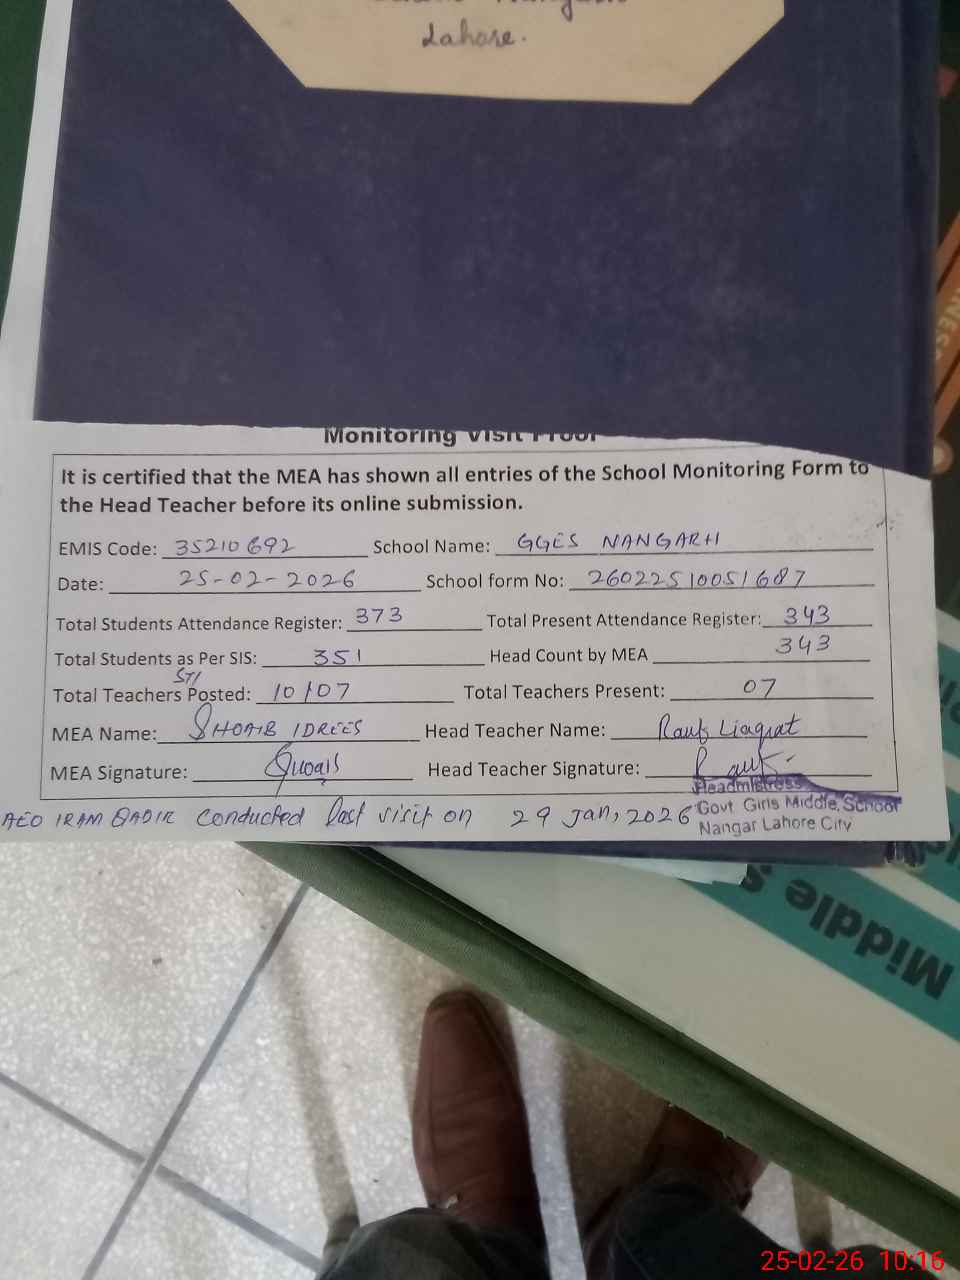 Lahore.
Monitoring Visit Proof
It is certified that the MEA has shown all entries of the School Monitoring Form to
the Head Teacher before its online submission.
EMIS Code: 35210692 School Name: GGES NANGARH
Date: 25-02-2026 School form No: 26022510051687
Total Students Attendance Register: 373 Total Present Attendance Register: 343
Total Students as Per SIS: 351 Head Count by MEA 343
STI
Total Teachers Posted: 10/07 Total Teachers Present: 07
MEA Name: SHOAIB IDREES Head Teacher Name: Rauf Liaquat
MEA Signature: Shoaib Head Teacher Signature: Rauf
Headmistress
Govt Girls Middle, School
Nangar Lahore City
AEO IRAM QADIR conducted last visit on 29 Jan, 2026
Middle S
25-02-26 10:16